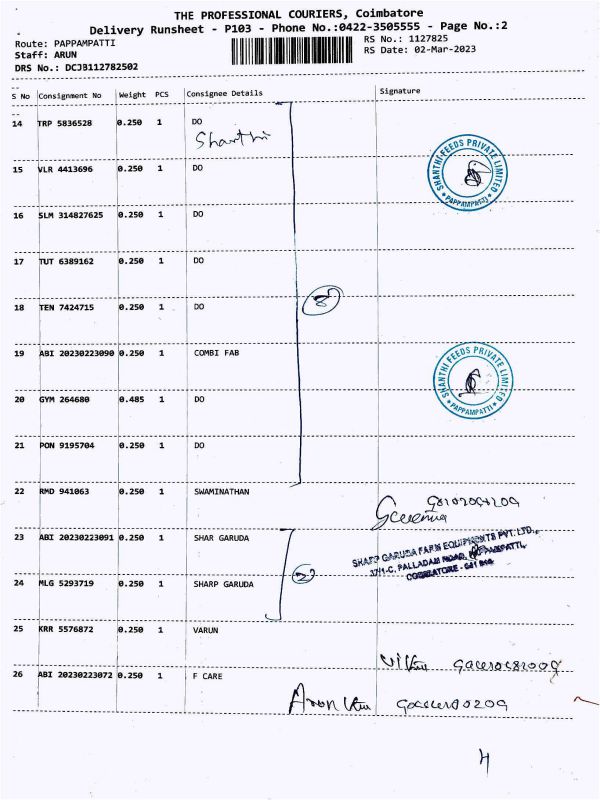 THE PROFESSIONAL COURIERS, Coimbatore
Delivery Runsheet - P103 - Phone No.:0422-3505555 - Page No.:2
Route: PAPPAMPATTI
RS No.: 1127825
Staff: ARUN
RS Date: 02-Mar-2023
DRS No.: DCJB112782502
S No Consignment No Weight PCS Consignee Details Signature
14 TRP 5836528 0.250 1 DO
Shanthi
15 VLR 4413696 0.250 1 DO
SHANTHI FEEDS PRIVATE LIMITED
* PAPPAMPATTI *
16 SLM 314827625 0.250 1 DO
17 TUT 6389162 0.250 1 DO
18 TEN 7424715 0.250 1 DO
8
19 ABI 20230223090 0.250 1 COMBI FAB
SHANTHI FEEDS PRIVATE LIMITED
* PAPPAMPATTI *
20 GYM 264680 0.485 1 DO
21 PON 9195704 0.250 1 DO
22 RMD 941063 0.250 1 SWAMINATHAN
23 ABI 20230223091 0.250 1 SHAR GARUDA
SHARP GARUDA FARM EQUIPMENTS PVT. LTD.,
37/1-C, PALLADAM ROAD, PAPPAMPATTI,
COIMBATORE
2
24 MLG 5293719 0.250 1 SHARP GARUDA
25 KRR 5576872 0.250 1 VARUN
26 ABI 20230223072 0.250 1 F CARE
4